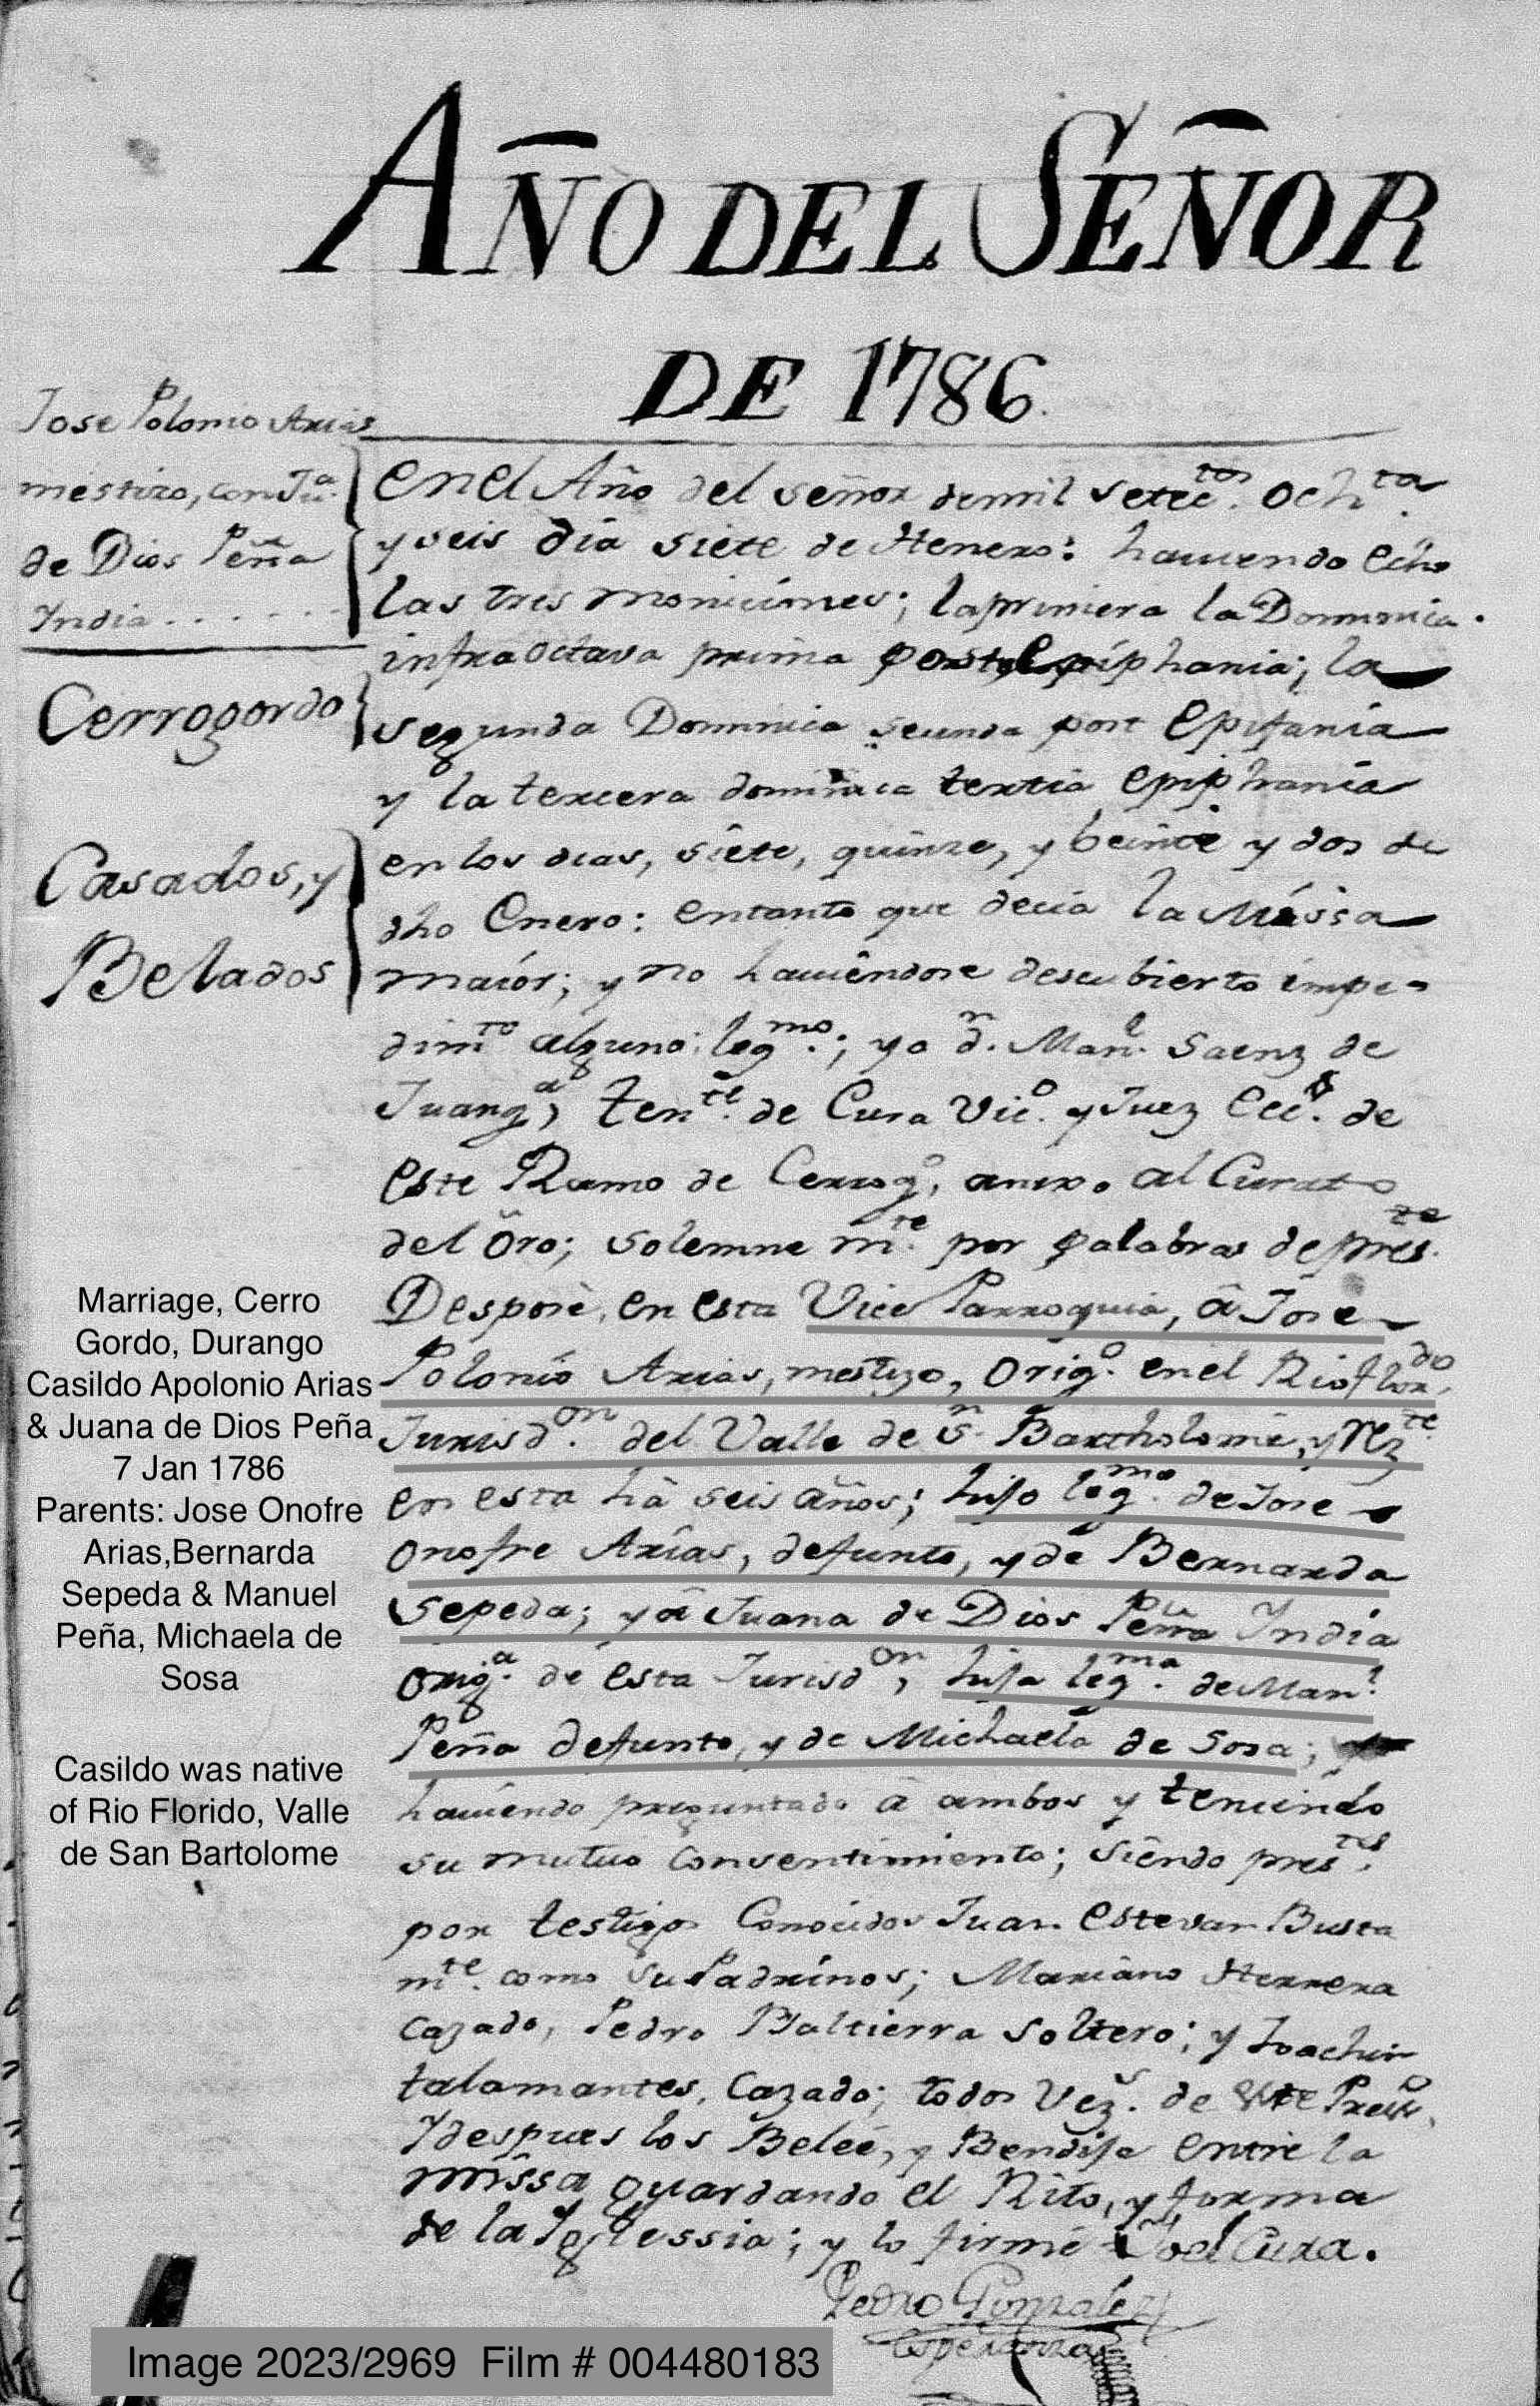 AÑO DEL SEÑOR
DE 1786.
Jose Polonio Arias
mestizo, con Ju.ª
de Dios Peña
India . . . . . .
Cerrogordo
Casados, y
Belados
en el Año del señor de mil setec.tos och.ta
y seis dia siete de Henero: haviendo echo
las tres moniciones; la primera la Dominica
infraoctava prima post Epiphania; la
segunda Dominica secunda post Epifania
y la tercera dominica tertia epiphania
en los dias, siete, quinze, y beinte y dos de
dho Enero: entanto que decia la Missa
maior; y no haviendose descubierto impe-
dim.to alguno leg.mo; yo d.n Man.l Saenz de
Juang.a, ten.te de Cura Vic.o y Juez Ecc. de
este Ramo de Cerrog.o, anexo al Curato
del Oro; solemne m.te por palabras de pres.te
Desposè, en esta Vice Parroquia, â Jose
Polonio Arias, mestizo, orig.o en el Rio flor.do
Jurisd.on del Valle de S.n Bartholome, y rez.te
en esta hà seis años; hijo leg.mo de Jose
Onofre Arias, defunto, y de Bernarda
Sepeda; y â Juana de Dios Peña India
orig.a de esta Jurisd.on, hija leg.ma de Man.l
Peña defunto, y de Michaela de Sosa;
haviendo preguntado â ambos y teniendo
su mutuo consentimiento; siendo pres.tes
por testigos Conocidos Juan Estevan Busta
m.te como su Padrinos; Mariano Herrera
Cazado, Pedro Baltierra Soltero; y Joachin
talamantes, Cazado; todos Vez.s de este Presid.o
Y despues los Beleé, y Bendije entre la
missa guardando el Rito, y forma
de la Iglessia; y lo firmé el Cura.
Pedro Gonzalez
Esperanza
Marriage, Cerro
Gordo, Durango
Casildo Apolonio Arias
& Juana de Dios Peña
7 Jan 1786
Parents: Jose Onofre
Arias,Bernarda
Sepeda & Manuel
Peña, Michaela de
Sosa
Casildo was native
of Rio Florido, Valle
de San Bartolome
Image 2023/2969 Film # 004480183